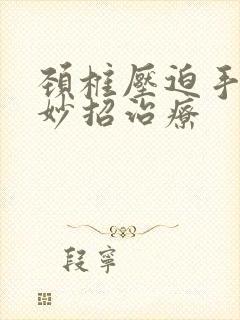 頚椎壓迫手
妙招治療
段寧